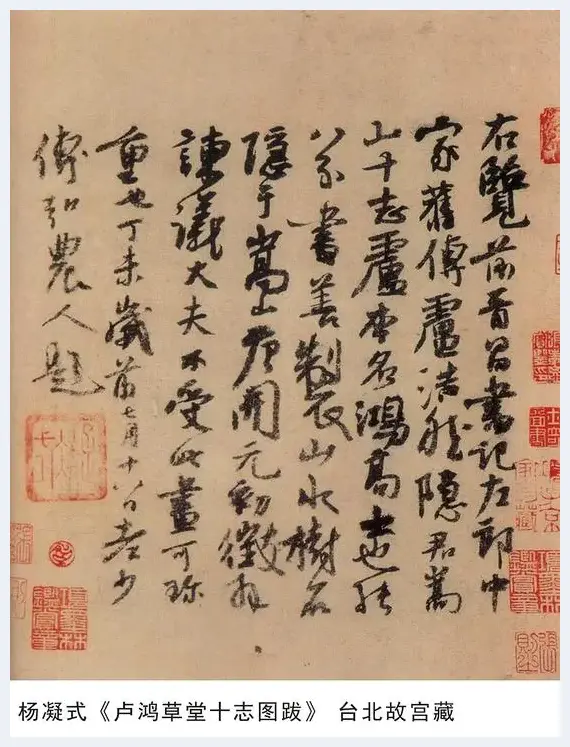 右覽前晉昌書記左郎中
家舊傳盧浩然隱君嵩
山十志盧本名鴻高士也能
八分書善製山水樹石
隱于嵩山唐開元初徵拜
諫議大夫不受此畫可珍
重也丁未歲前七月十八日老少
傅弘農人題
杨凝式《卢鸿草堂十志图跋》 台北故宫藏